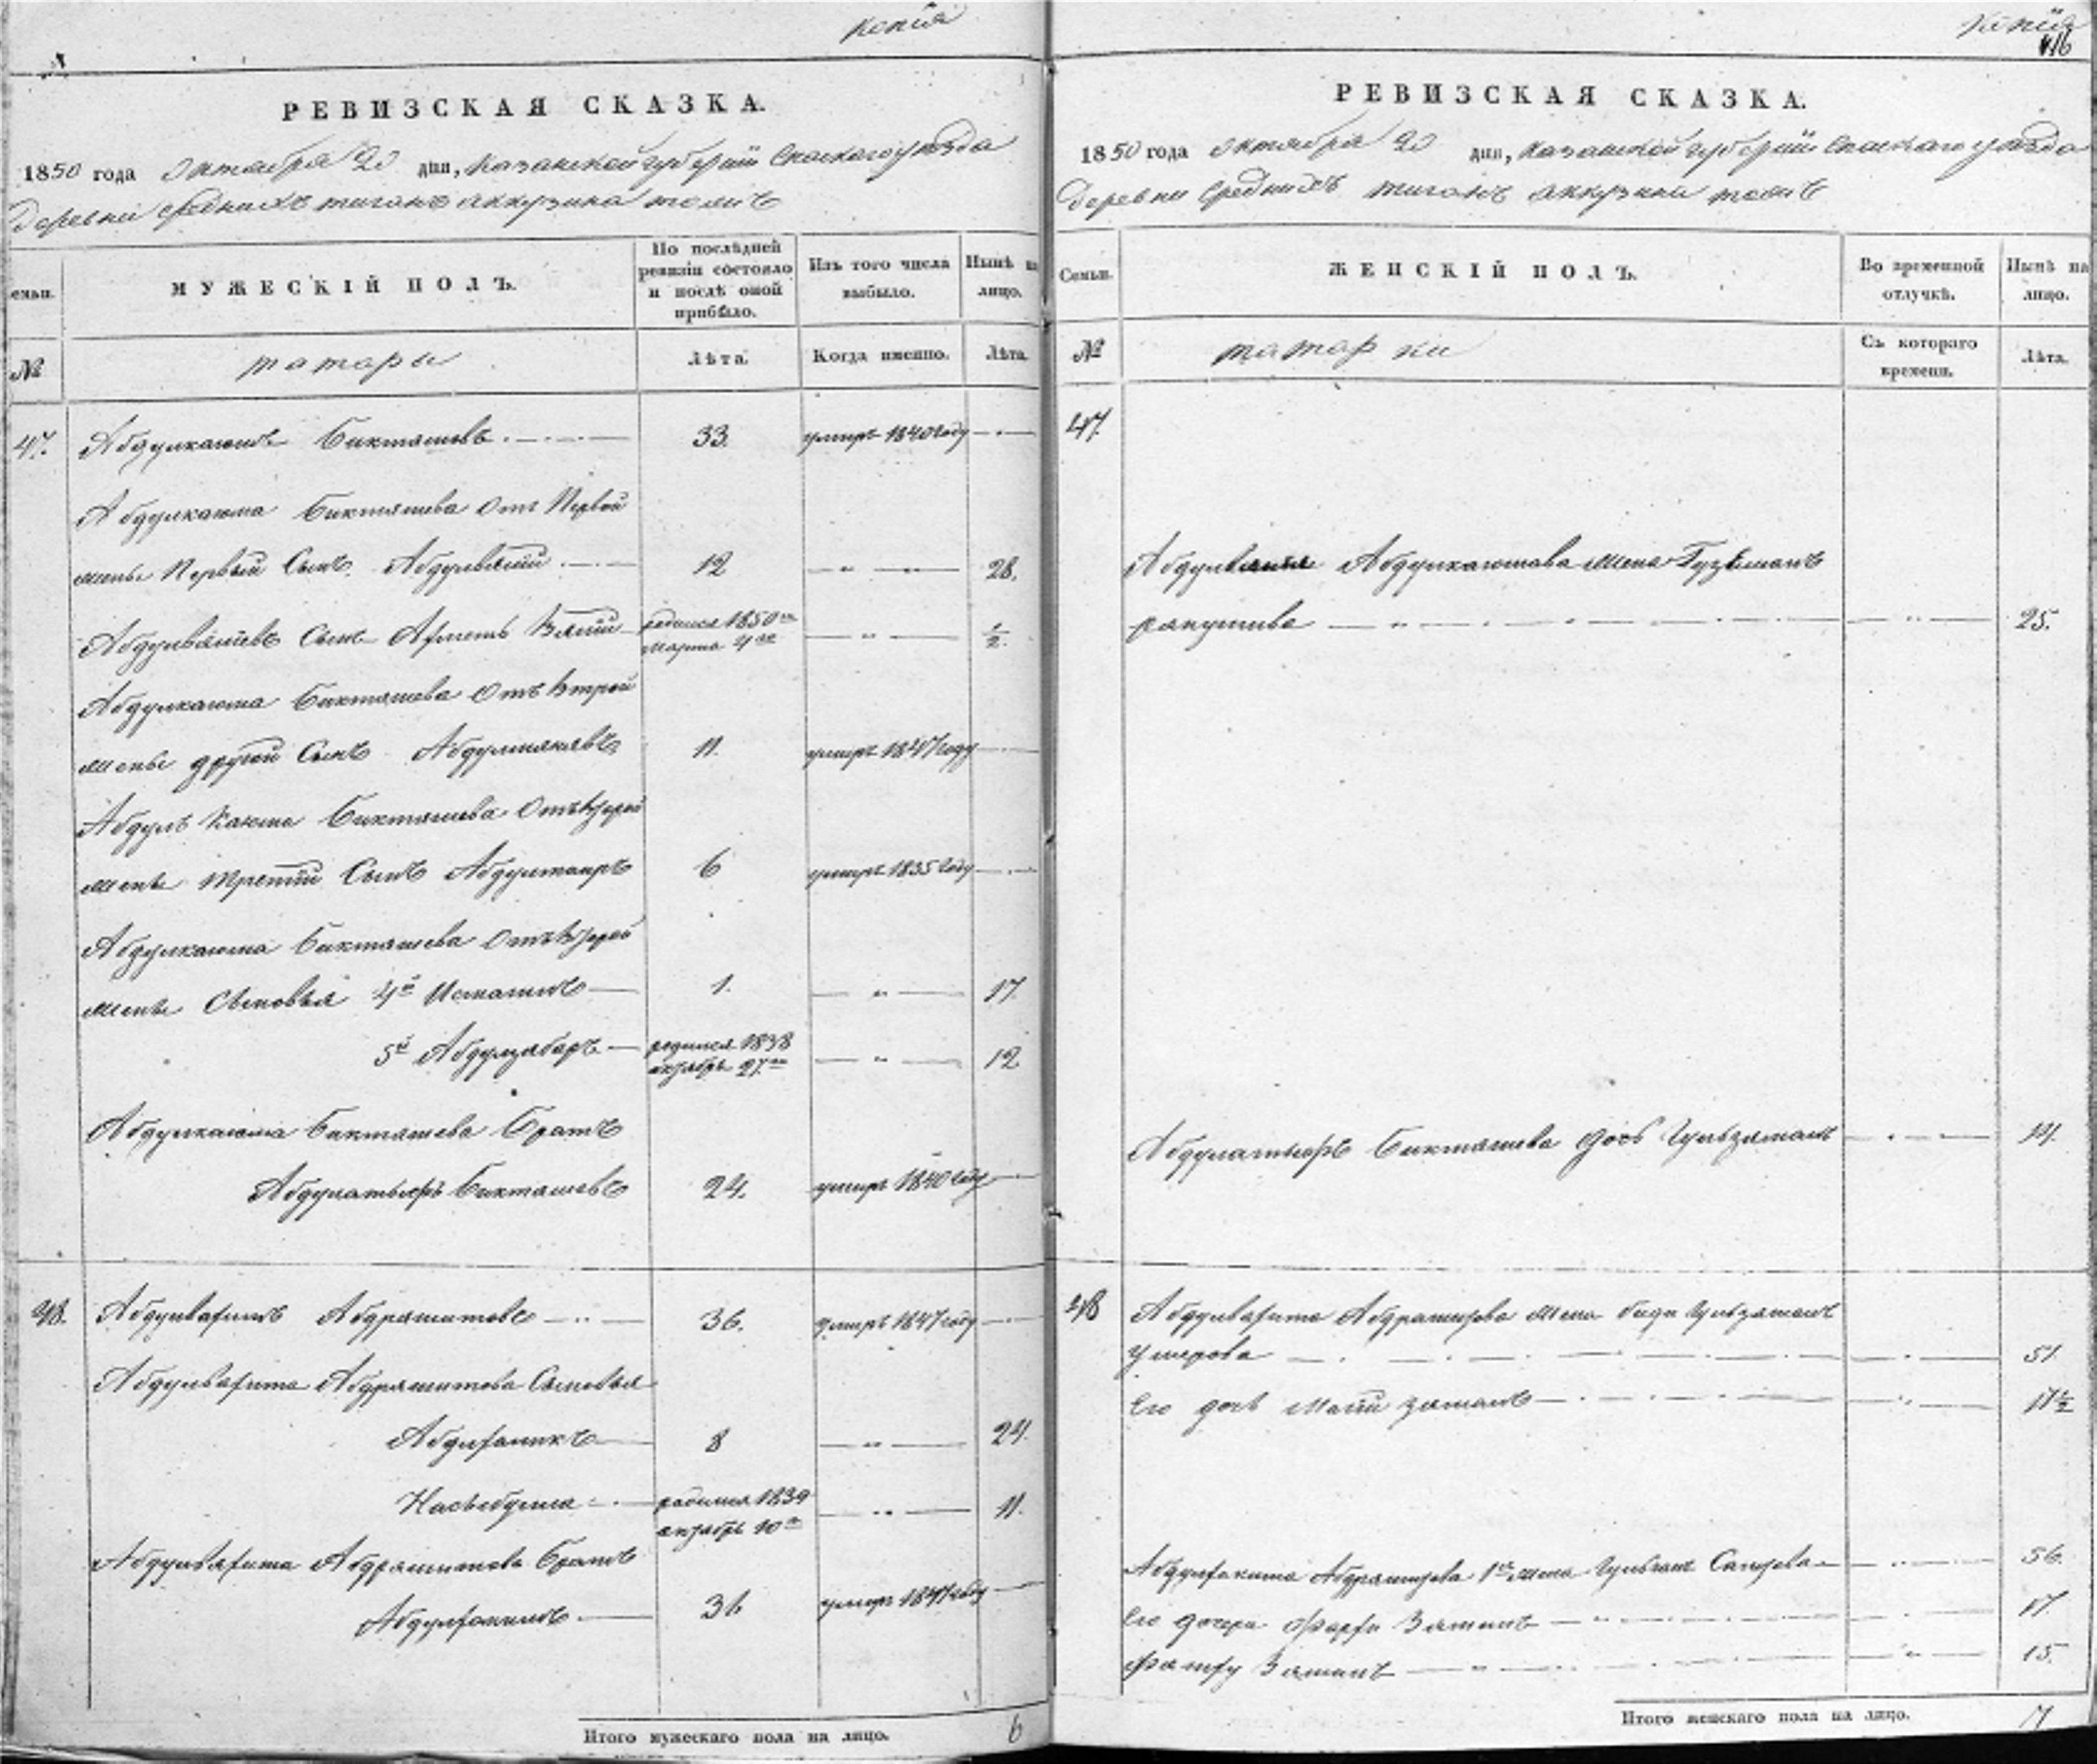 копія
РЕВИЗСКАЯ СКАЗКА.
1850 года Октября 20 дня, Казанской губерніи Спаскаго уѣзда
Деревни Среднихъ Тиганъ Аккузина тожъ
Семьи.
МУЖЕСКІЙ ПОЛЪ.
По послѣдней ревизіи состояло и послѣ оной прибыло.
Изъ того числа выбыло.
Нынѣ на лицо.
№
татары
Лѣта.
Когда именно.
Лѣта.
47. Абдулкаюмъ Бикташевъ 33. умеръ 1840 году
Абдулкаюма Бикташева Отъ Первой
жены Первый Сынъ Абдулвалій 12 28.
Абдулваліевъ Сынъ Ахметь Валій родился 1850 го марта 4 го ½
Абдулкаюма Бикташева Отъ второй
жены другой Сынъ 11. умеръ 1847 году
Абдулъ Каюма Бикташева Отъ второй
жены третій Сынъ 6 умеръ 1835 году
Абдулкаюма Бикташева Отъ второй
жены Сыновья 4й Исмагилъ 1. 17.
5й Абдулзабаръ родился 1838 октября 27 го 12
Абдулкаюма Бикташева Братъ
Бикташевъ 24. умеръ 1840 году
48. Абдулвагитъ Абдрашитовъ 36. умеръ 1847 году
Абдулвагита Абдрашитова Сыновья
8 24.
Насыбулла родился 1839 октября 10 го 11.
Абдулвагита Абдрашитова Братъ
31 умеръ 1847 году
Итого мужескаго пола на лицо. 6
Копія
416
РЕВИЗСКАЯ СКАЗКА.
1850 года Октября 20 дня, Казанской губерніи Спаскаго уѣзда
Деревни Среднихъ Тиганъ Аккузина тожъ
Семьи.
ЖЕНСКІЙ ПОЛЪ.
Во временной отлучкѣ.
Нынѣ на лицо.
№
татарки
Съ котораго времени.
Лѣта.
47.
Абдулвалія Абдулкаюмова жена
25.
Бикташева дочь Гульзяманъ 14.
48 Абдулвагита Абдрашитова жена Биби Гульзяманъ
Умерова 51.
Его дочь зяманъ 11½
Абдрашитова 1я жена Сагитова 56.
Его дочери Зяманъ 17.
Зяманъ 15.
Итого женскаго пола на лицо. 7